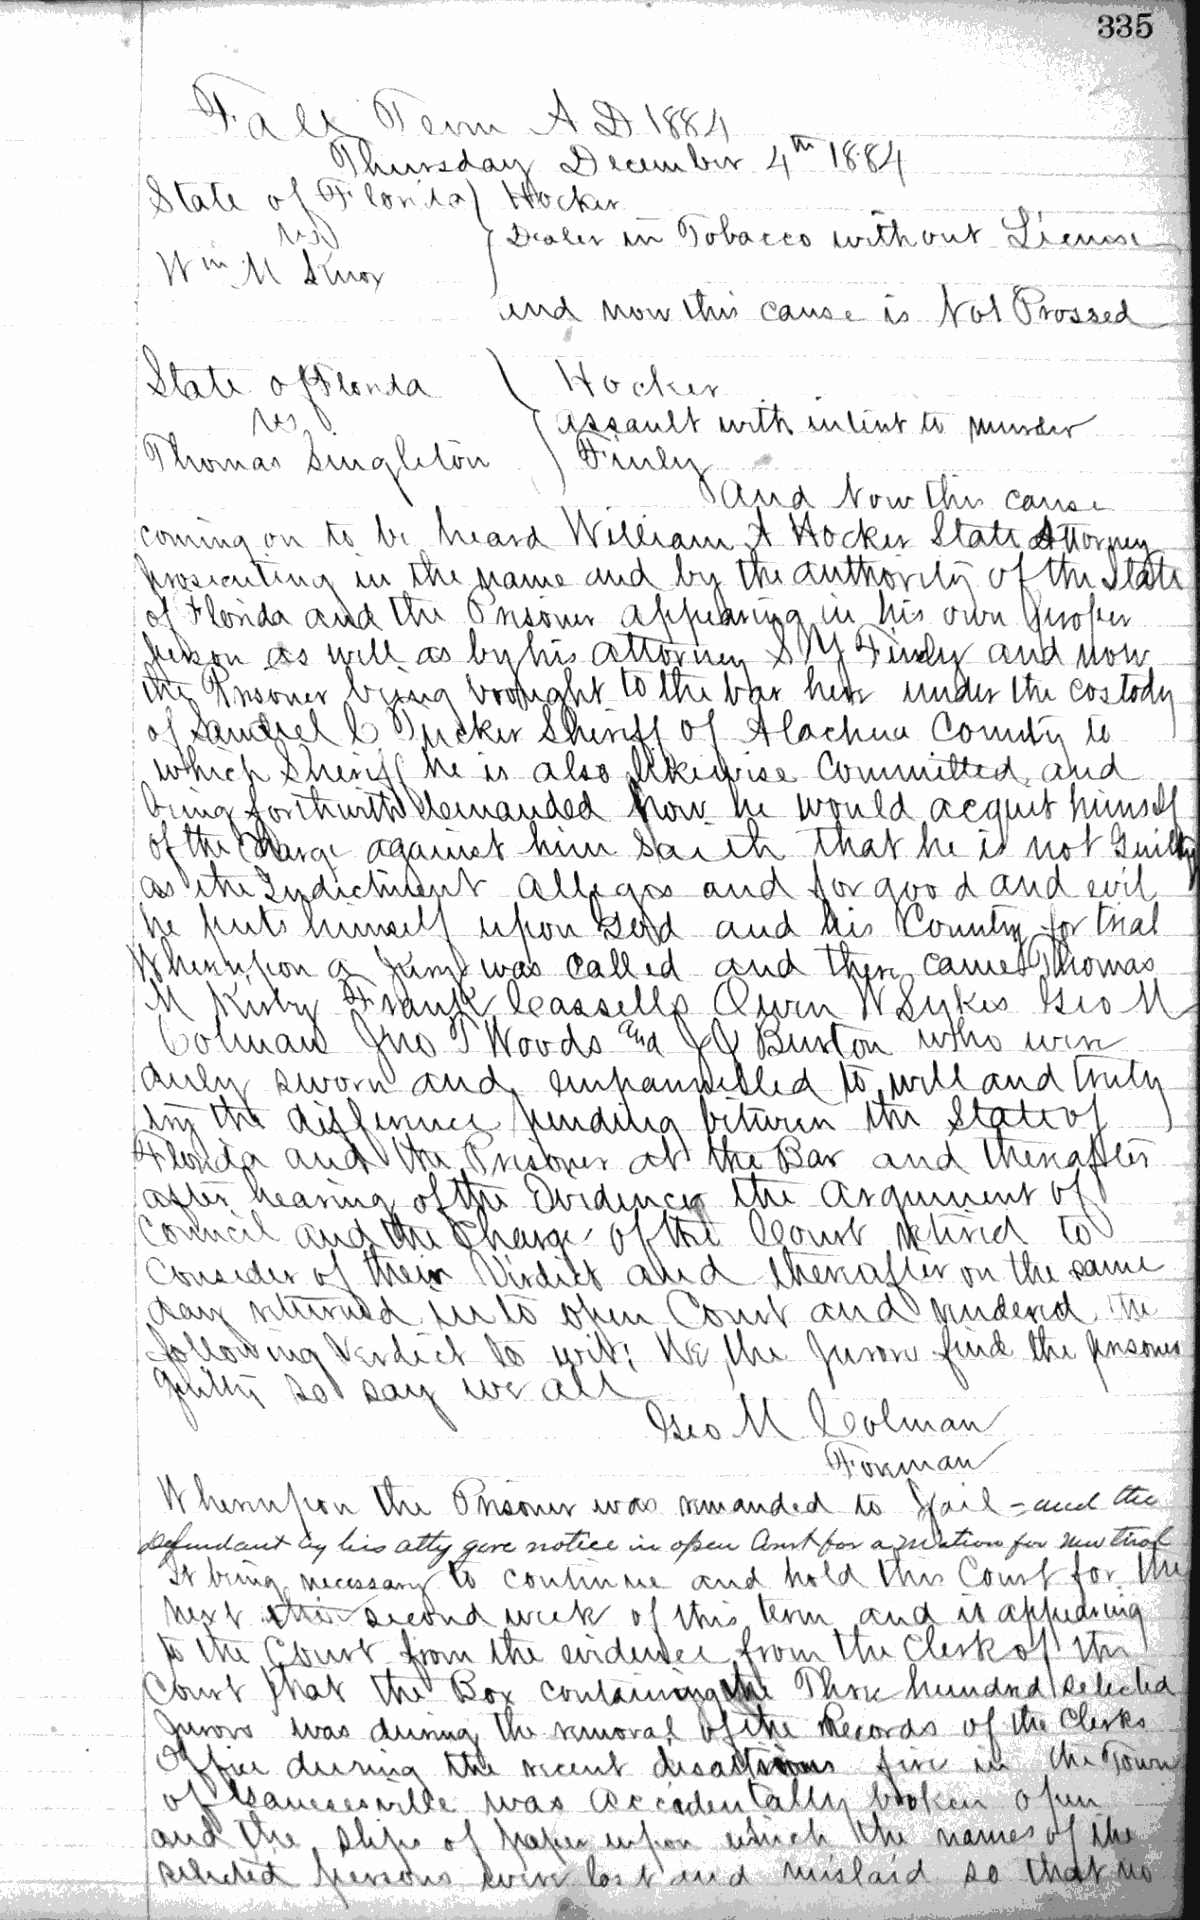 335
Fall Term A D 1884
Thursday December 4th 1884
State of Florida } Hocker
vs } Dealer in Tobacco without License
Wm M Knox
and now this cause is Nol Prossed
State of Florida } Hocker
vs } assault with intent to murder
Thomas Singleton } Finley
And Now this cause
coming on to be heard William A Hocker State Attorney
prosecuting in the name and by the authority of the State
of Florida and the Prisoner appearing in his own proper
person as well as by his attorney S Y Finley and now
the Prisoner being brought to the bar here under the costody
of Samuel C Tucker Sheriff of Alachua County to
which Sheriff he is also likewise Committed and
being forthwith demanded how he would acquit himself
of the Charge against him Saith that he is not Guilty
as the Indictment alleges and for good and evil
he puts himself upon God and his Country for trial
Whereupon a Jury was called and there came Thomas
M Kirby Frank Cassells Owen W Sykes Geo M
Colman Jno T Woods and J J Burton who were
duly sworn and empannelled to well and truly
try the difference pending between the State of
Florida and the Prisoner at the Bar and thereafter
after hearing of the Evidence the argument of
Council and the Charge of the Court retired to
Consider of their Virdict and thereafter on the same
day returned into open Court and rendered the
following Verdict to wit; We the Jurors find the prisoner
guilty so say we all
Geo M Colman
Foreman
Whereupon the Prisoner was remanded to Jail - and the
defendant by his atty gave notice in open Court for a motion for new trial
It being necessary to continue and hold this Court for the
next second week of this term and it appearing
to the Court from the evidence from the Clerk of the
Court that the Box containing the Three hundred selected
Jurors was during the removal of the Records of the Clerks
Office during the recent disastrous fire in the Town
of Gainesville was accidentally broken open
and the slips of paper upon which the names of the
selected persons were lost and mislaid so that no